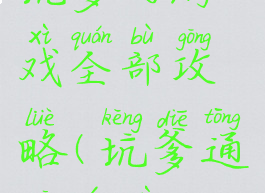 xì quán bù gōng
戏全部攻
lüè kēng diē tōng
略(坑爹通